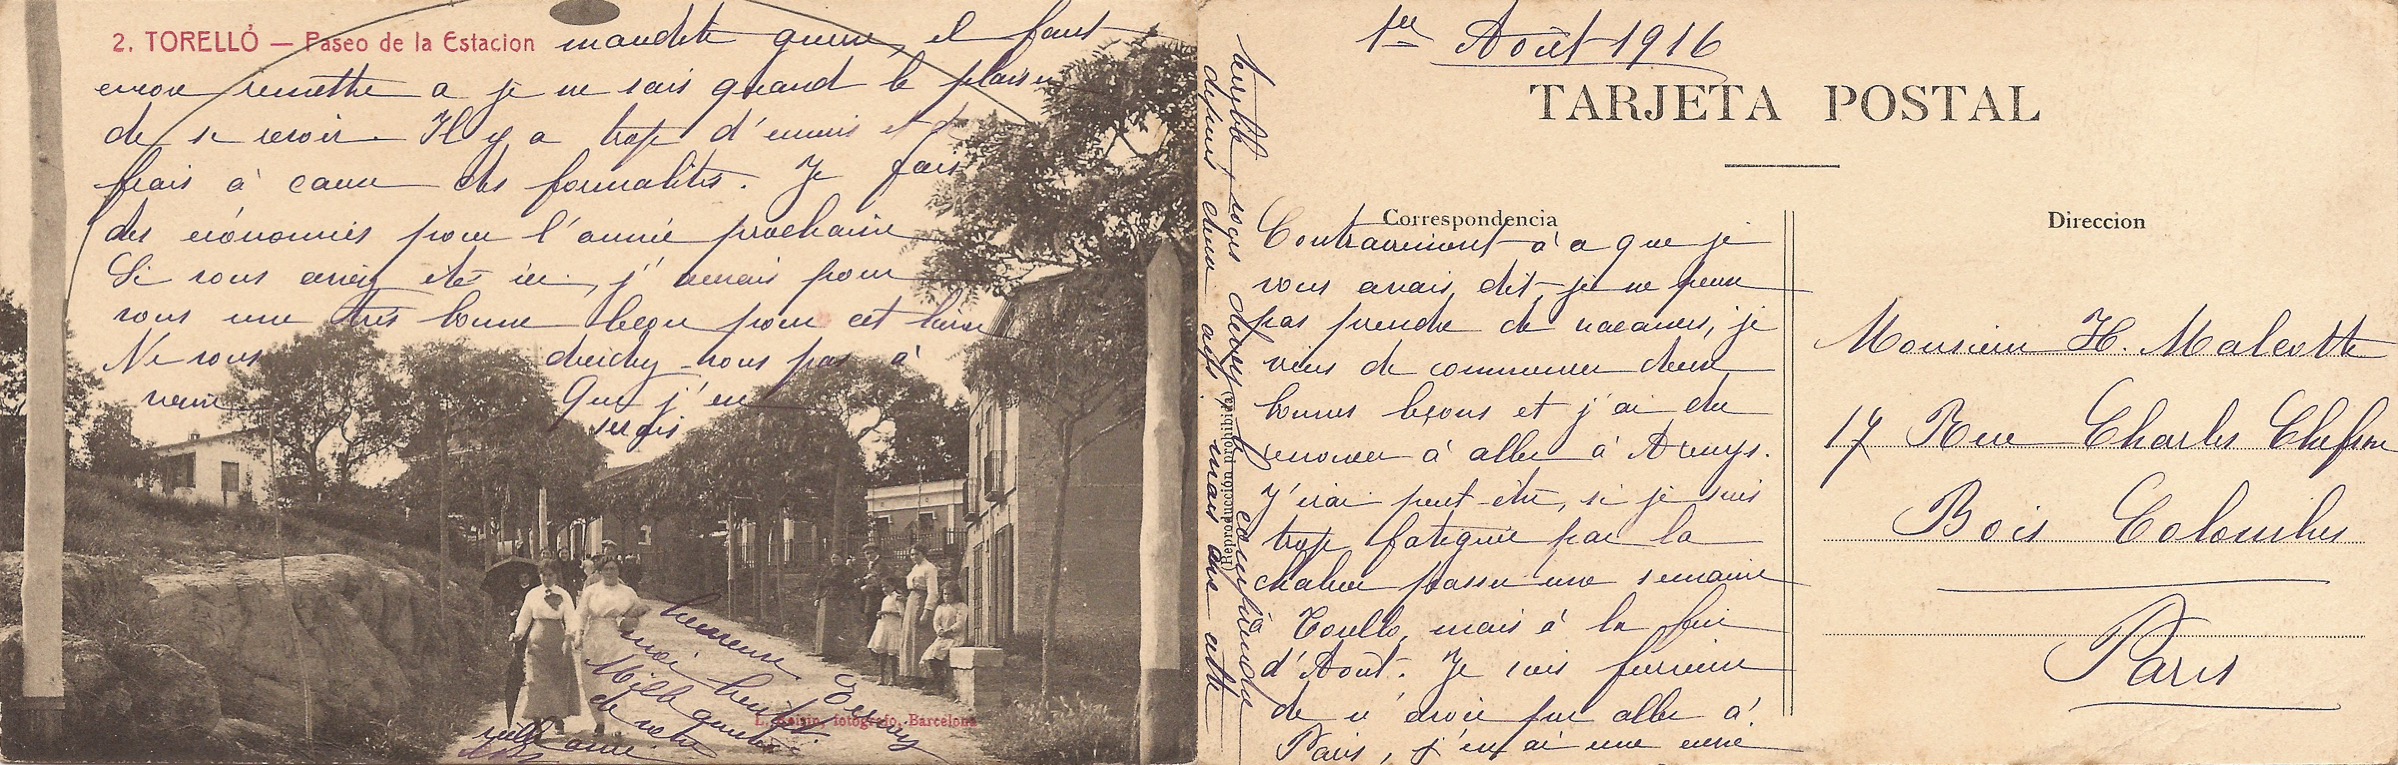 2. TORELLÓ — Paseo de la Estacion
maudite guerre, il faut
encore remettre a je ne sais quand le plaisir
de se revoir. Il y a trop d'ennuis et de
frais à cause des formalités. Je fais
des économies pour l'année prochaine
Si vous aviez été ici, j'aurais pour
vous une très bonne leçon pour cet hiver
Ne vous
venir
vous pas à
Que j'en
serais
heureuse
moi
Mille
de votre
vieille amie
L. Roisin, fotógrafo,-Barcelona
1er Août 1916
TARJETA POSTAL
Correspondencia
Direccion
Contrairement à ce que je
vous avais dit je ne peux
pas prendre de vacances, je
viens de commencer deux
bonnes leçons et j'ai du
renoncer à aller à Arenys.
J'irai peut-être, si je suis
trop fatiguée par la
chaleur passer une semaine
Torello, mais à la fin
d'Août. Je suis furieuse
de n'avoir pu aller à
Paris, j'en ai une envie
terrible, vous devez le comprendre
depuis deux ans mais avec cette
(Reproducción prohibida)
Monsieur H. Malcotte
17 Rue Charles Chefson
Bois Colombes
Paris